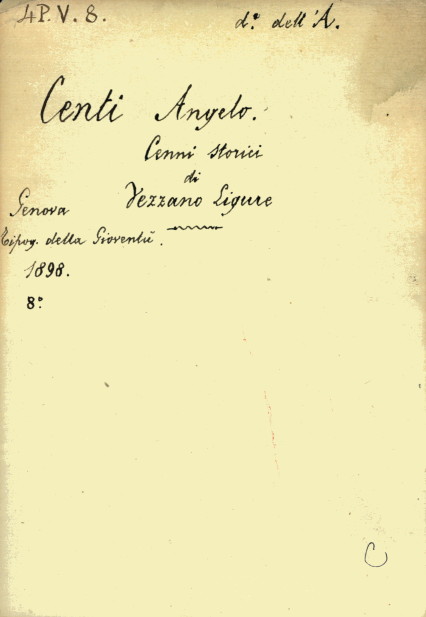 4P.V.8.
d.° dell'A.
Centi Angelo.
Cenni storici
di
Vezzano Ligure
Genova
Tipog. della Gioventù.
1898.
8°
C